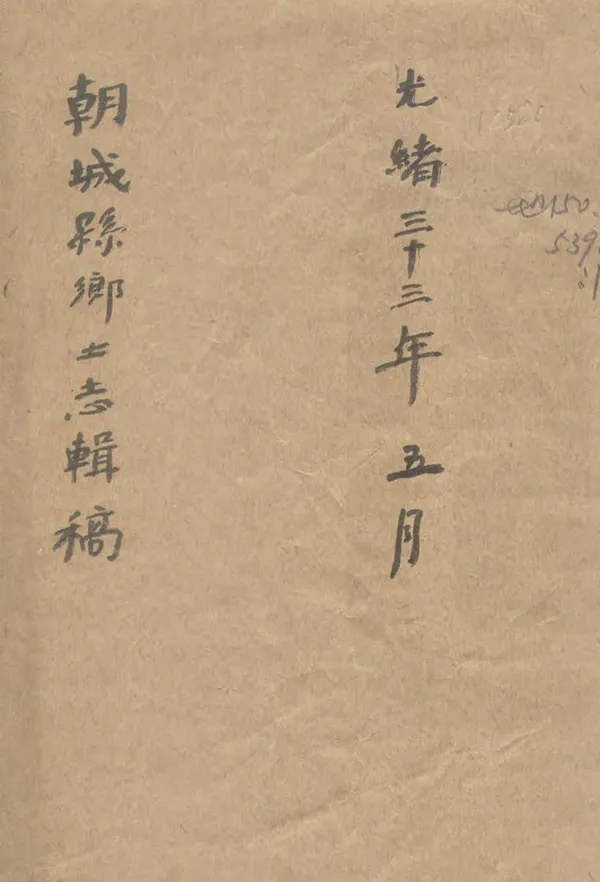 光緒三十三年五月
朝城縣鄉土志輯稿
150.
539.